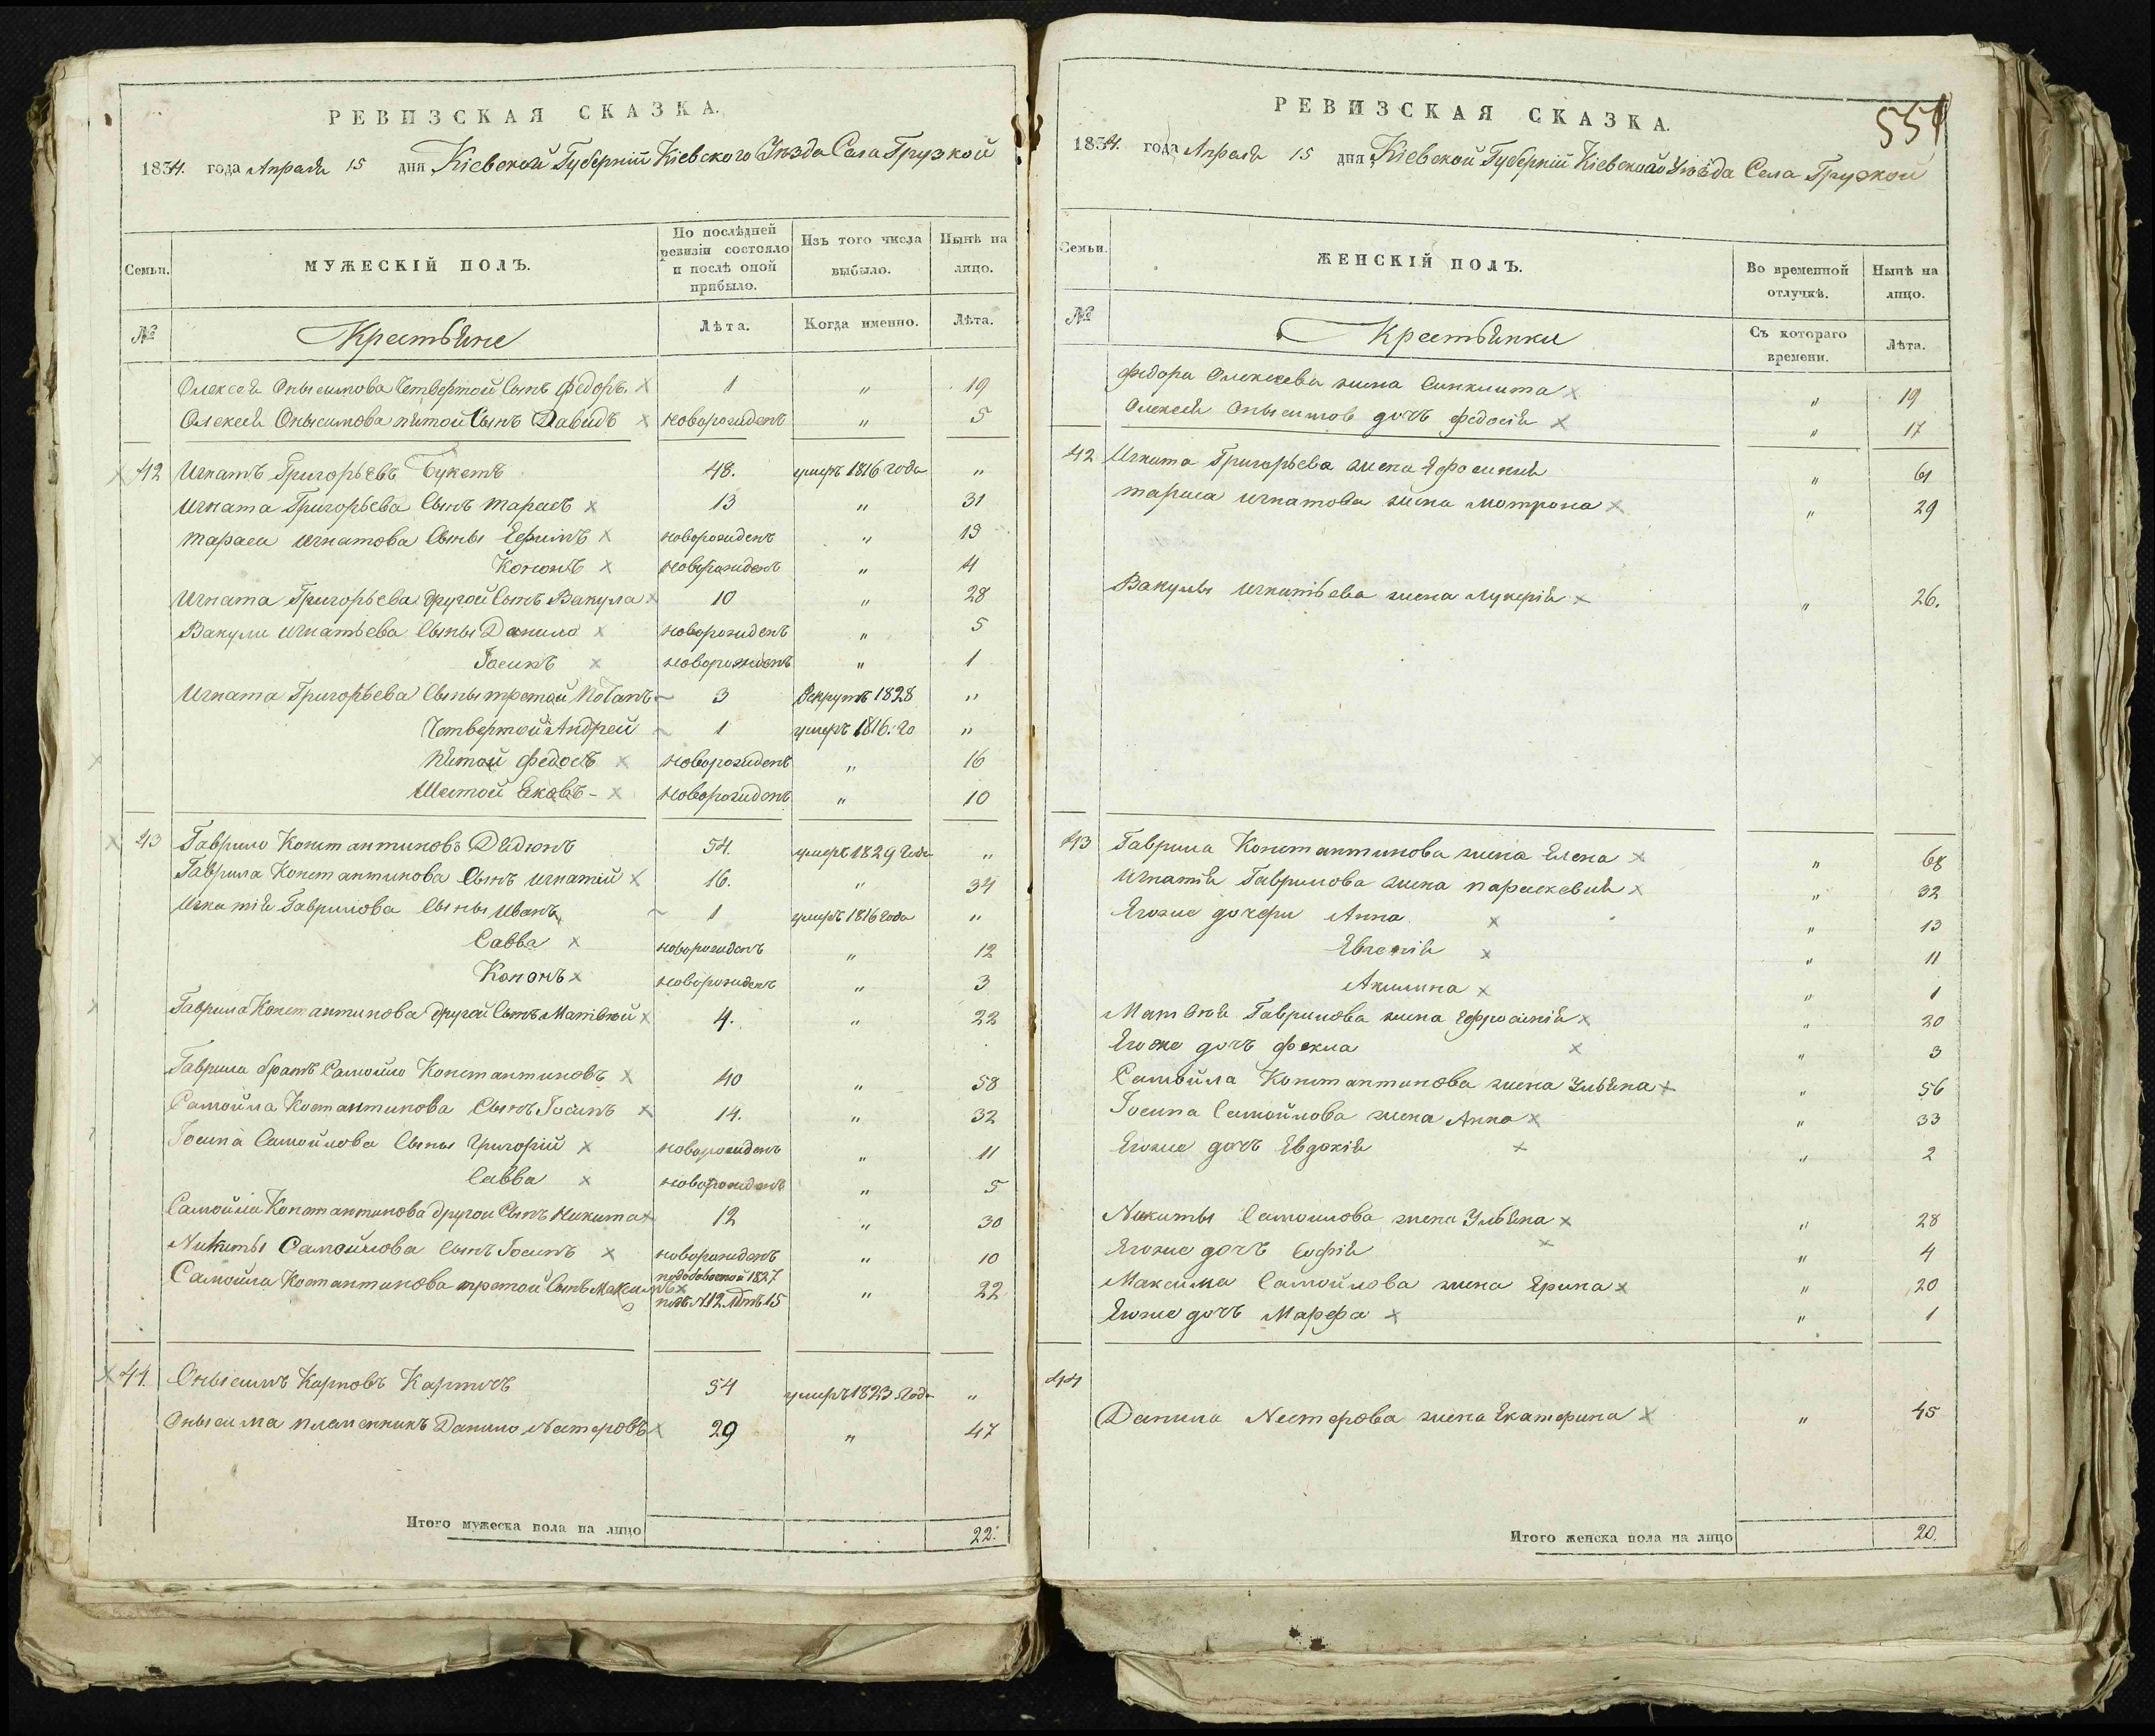 РЕВИЗСКАЯ СКАЗКА.
1834. года Апреля 15 дня Кіевской Губерніи Кіевского Уѣзда Села Грузкой
Семьи. МУЖЕСКІЙ ПОЛЪ. По послѣдней ревизіи состояло и послѣ оной прибыло. Изъ того числа выбыло. Нынѣ на лицо.
№ Крестьяне Лѣта. Когда именно. Лѣта.
Олексея Онысимова Четвертой Сынъ Федоръ. 1 " 19
Олексея Онысимова пятой Сынъ Давидъ новорожденъ " 5
42 Игнатъ Григорьевъ Букетъ 48. умеръ 1816 года "
Игната Григорьева Сынъ Тарасъ 13 " 31
Тараса Игнатова Сыны Ефимъ новорожденъ " 13
Кононъ новорожденъ " 4
Игната Григорьева другой Сынъ Вакула 10 " 28
Вакулы Игнатьева Сыны Данило новорожденъ " 5
Іосипъ новорожденъ " 1
Игната Григорьева Сыны третой 3 Рекрутъ 1828 "
Четвертой Андрей 1 умеръ 1816. го "
Пятой Федосъ новорожденъ " 16
Шестой Яковъ новорожденъ " 10
43 Гаврило Константиновъ Дядюнъ 54 умеръ 1829 года "
Гаврила Константинова Сынъ Игнатій 16. " 34
Игнатія Гаврилова Сыны Иванъ 1 умеръ 1816 года "
Савва новорожденъ " 12
Кононъ новорожденъ " 3
Гаврила Константинова другой Сынъ Матвѣй 4. " 22
Гаврила братъ Самойло Константиновъ 40 " 58
Самойла Костантинова Сынъ Іосипъ 14. " 32
Іосипа Самойлова Сыны Григорій новорожденъ " 11
Савва новорожденъ " 5
Самойла Константинова другой Сынъ Никита 12 " 30
Никиты Самойлова Сынъ Іосипъ новорожденъ " 10
Самойла Костантинова третой Сынъ Максимъ 1827 №12 лѣтъ 15 " 22
44 Онысимъ Карповъ 54 умеръ 1823 года "
Онысима племенникъ Данило Нестеровъ 29 " 47
Итого мужеска пола на лицо 22.
551
РЕВИЗСКАЯ СКАЗКА.
1834. года Апреля 15 дня Кіевской Губерніи Кіевского Уѣзда Села Грузкой
Семьи. ЖЕНСКІЙ ПОЛЪ. Во временной отлучкѣ. Нынѣ на лицо.
№ Крестьянки Съ котораго времени. Лѣта.
Федора Олексеева жена Синклита " 19
Олексея Онысимов дочъ Федосія " 17
42 Игната Григорьева жена Ефросинія " 61
Тараса Игнатова жена Мотрона " 29
Вакулы Игнатьева жена Лукерія " 26.
43 Гаврила Константинова жена Елена " 68
Игнатія Гаврилова жена Параскевия " 32
Егоже дочери Анна " 13
Евгенія " 11
Акилина " 1
Матвѣя Гаврилова жена Ефросинія " 20
Егоже дочъ Фекла " 3
Самойла Константинова жена Ульяна " 56
Іосипа Самойлова жена Анна " 33
Егоже дочъ Евдокія " 2
Никиты Самойлова жена Ульяна " 28
Егоже дочъ Софія " 4
Максима Самойлова жена Ерина " 20
Егоже дочъ Марфа " 1
44
Данила Нестерова жена Екатерина " 45
Итого женска пола на лицо 20.